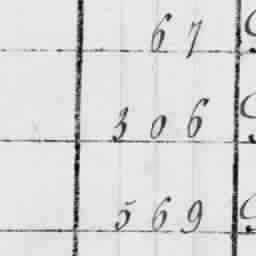 67
306
569